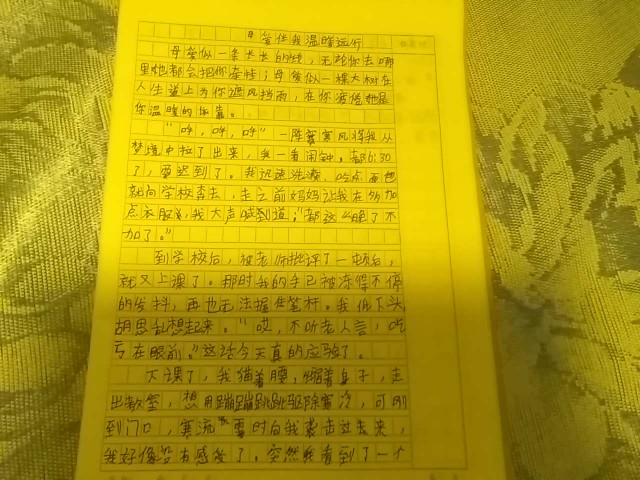 母爱伴我温暖远行
母爱似一条长长的线，无论你去哪
里她都会把你牵绊；母爱似一棵大树在
人生道上为你遮风挡雨，在你疲倦她是
你温暖的依靠。
“呼，呼，呼”一阵寒风将我从
梦境中拉了出来，我一看闹钟。都6:30
了，要迟到了。我迅速洗漱、吃点面包
就向学校奔去，走之前妈妈让我在多加
点衣服，我大声喊到道：“都这么晚了不
加了。”
到学校后，被老师批评了一顿后，
就又上课了。那时我的手已被冻得不停
的发抖，再也无法握住笔杆。我低下头
胡思乱想起来。“哎，不听老人言，吃
亏在眼前。”这话今天真的应验了。
大课了，我猫着腰，缩着身子，走
出教室，想用蹦蹦跳跳驱除寒冷，可刚
到门口，寒流霎时向我袭击过去来，
我好像没有感觉了。突然我看到了一个